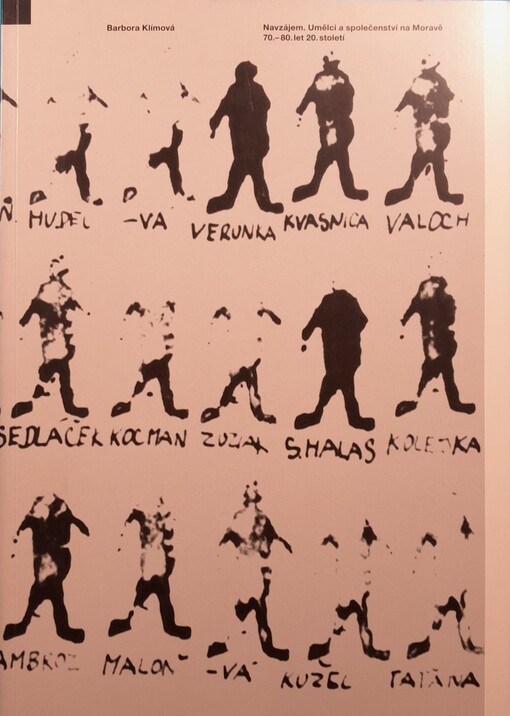 Barbora Klímová
Navzájem. Umělci a společenství na Moravě
70.–80. let 20. století
HUDEC -VA VERUNKA KVASNICA VALOCH
SEDLÁČEK KOCMAN S.HALAS
AMBROZ -VÁ KUŽEL TAŤÁNA